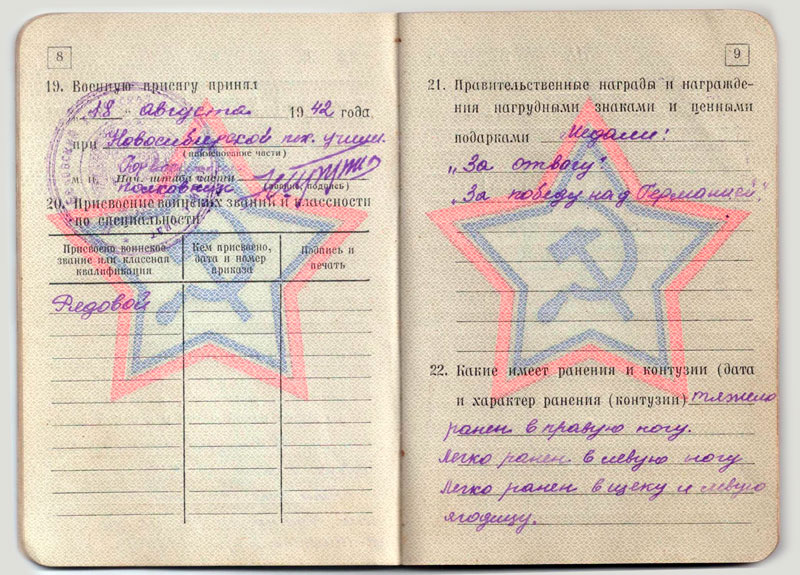 8
19. Военную присягу принял
„18“ августа 1942 года
при Новосибирской пех. учили.
(наименование части)
м. п. Нач. штаба части
полковник
(звание, подпись)
20. Присвоение воинских званий и классности
по специальности
Присвоено воинское
звание или классная
квалификация
Кем присвоено,
дата и номер
приказа
Подпись и
печать
Рядовой
9
21. Правительственные награды и награжде-
ния нагрудными знаками и ценными
подарками Медали:
„За отвагу“
„За победу над Германией“
22. Какие имеет ранения и контузии (дата
и характер ранения (контузии) тяжело
ранен в правую ногу.
Легко ранен в левую ногу
Легко ранен в щеку и левую
ягодицу.